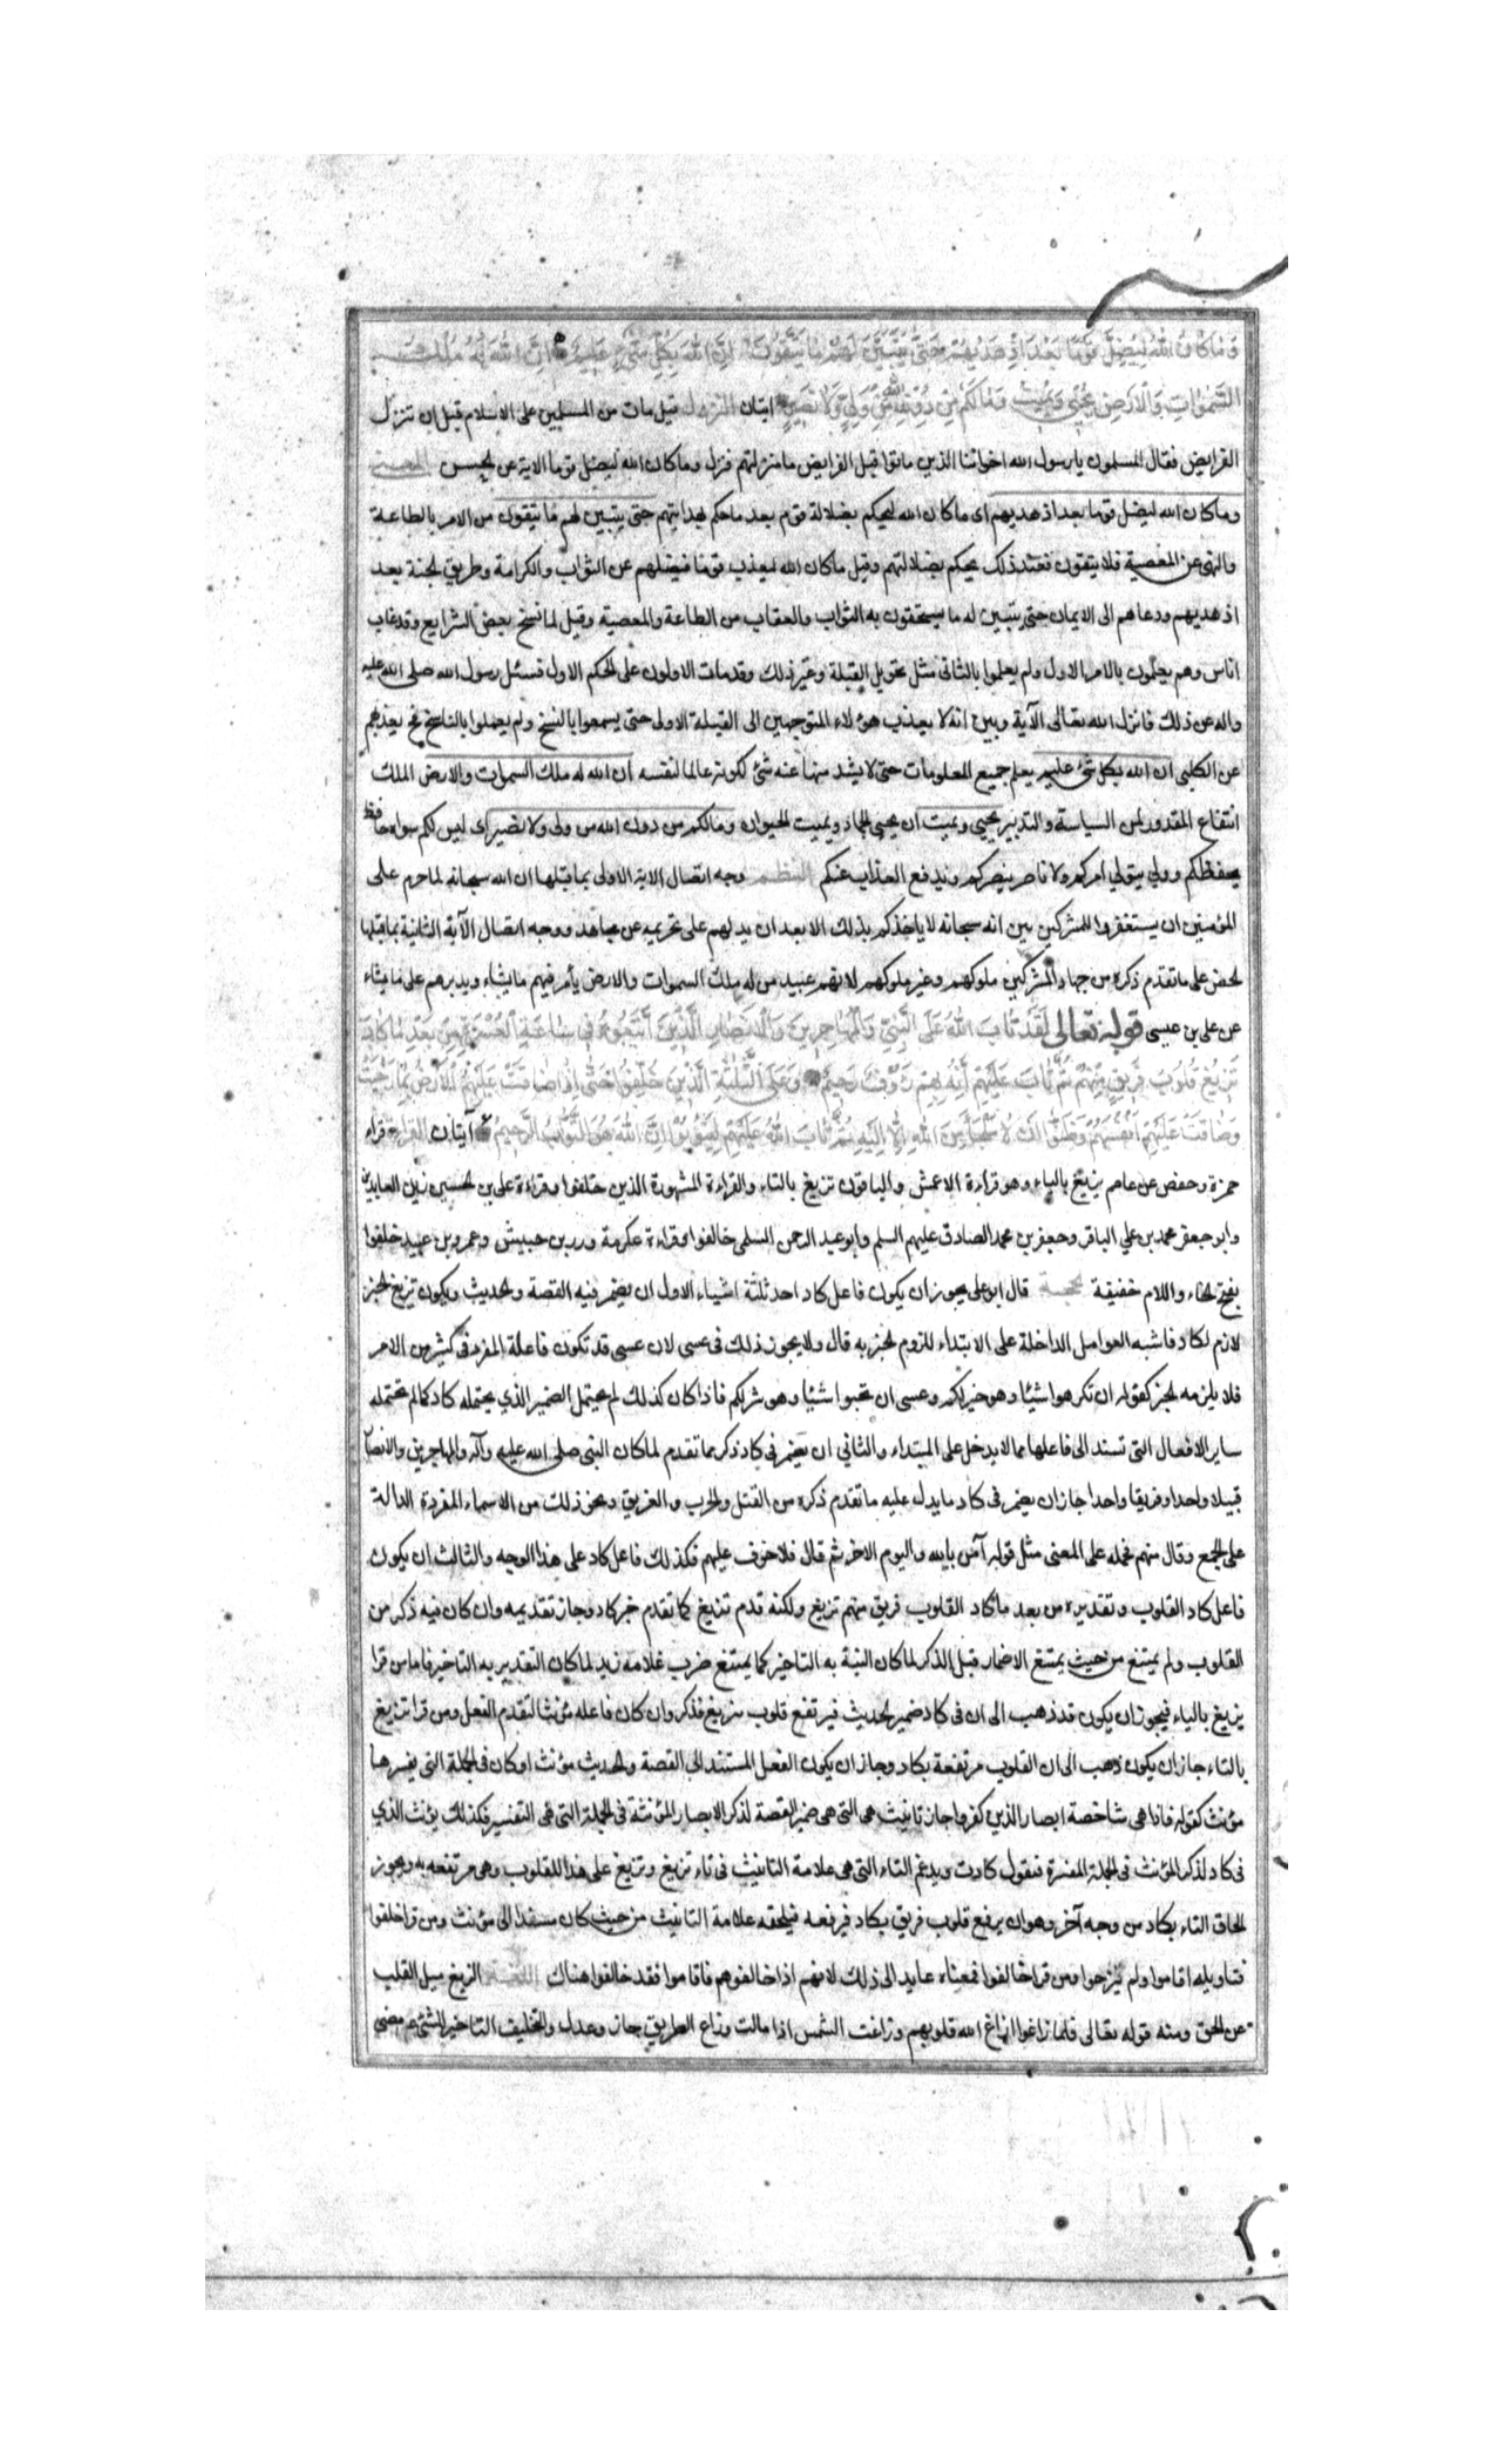 وَمَا كَانَ اللهُ لِيُضِلَّ قَوْمًا بَعْدَ إِذْ هَدٰيهُمْ حَتّٰى يُبَيِّنَ لَهُمْ مَا يَتَّقُونَ اِنَّ اللهَ بِكُلِّ شَيْءٍ عَلِيمٌ اِنَّ اللهَ لَهُ مُلْكُ
السَّمٰوَاتِ وَالْاَرْضِ يُحْيِي وَيُمِيتُ وَمَا لَكُمْ مِنْ دُونِ اللهِ مِنْ وَلِيٍّ وَلَا نَصِيرٍ ايتان النزول قيل مات من المسلمين على الاسلام قبل ان تنزل
الفرايض فقال المسلمون يا رسول الله اخواننا الذين ماتوا قبل الفرايض ما منزلتهم فنزل وما كان الله ليضل قوما الاية عن الحسن المعنى
وما كان الله ليضل قوما بعد اذ هديهم اى ما كان الله ليحكم بضلالة قوم بعد ما حكم بهدايتهم حتى يتبين لهم ما يتقون من الامر بالطاعة
والنهى عن المعصية فلا يتقون فعند ذلك يحكم بضلالتهم وقيل ما كان الله ليعذب قوما فيضلهم عن الثواب والكرامة وطريق الجنة بعد
اذ هديهم ودعاهم الى الايمان حتى يتبين له ما يستحقون به الثواب والعقاب من الطاعة والمعصية وقيل لما نسخ بعض الشرايع وقد غاب
اناس وهم يعملون بالامر الاول ولم يعلموا بالثانى مثل تحويل القبلة وغير ذلك وقد مات الاولون على الحكم الاول فسئل رسول الله صلى الله عليه
واله عن ذلك فانزل الله تعالى الآية وبين انه لا يعذب هؤلاء المتوجهين الى القبلة الاولى حتى يسمعوا بالنسخ ولم يعملوا بالناسخ فح يعذبهم
عن الكلبى ان الله بكل شئ عليم يعلم جميع المعلومات حتى لا يشذ منها عنه شئ لكونه عالما لنفسه ان الله له ملك السموات والارض الملك
اتساع المقدور لمن السياسة والتدبير يحيي ويميت ان يحيى الجماد ويميت الحيوان ومالكم من دون الله من ولى ولا نصير اى ليس لكم سواه حافظ
يحفظكم وولي يتولي امركم ولا ناصر ينصركم ويدفع العذاب عنكم النظم وجه اتصال الاية الاولى بما قبلها ان الله سبحانه لما حرم على
المؤمنين ان يستغفروا للمشركين بين انه سبحانه لا ياخذكم بذلك الا بعد ان يدلهم على تحريمه عن مجاهد ووجه اتصال الآية الثانية بما قبلها
لحض على ما تقدم ذكره من جهاد المشركين ملوكهم وغير ملوكهم لانهم عبيد من له ملك السموات والارض يأمر فيهم ما يشاء ويدبرهم على ما يشاء
عن على بن عيسى قوله تعالى لَقَدْ تَابَ اللهُ عَلَى النَّبِيِّ وَالْمُهَاجِرِينَ وَالْاَنْصَارِ الَّذِينَ اتَّبَعُوهُ فِي سَاعَةِ الْعُسْرَةِ مِنْ بَعْدِ مَا كَادَ
تَزِيغُ قُلُوبُ فَرِيقٍ مِنْهُمْ ثُمَّ تَابَ عَلَيْهِمْ اِنَّهُ بِهِمْ رَؤُفٌ رَحِيمٌ وَعَلَى الثَّلٰثَةِ الَّذِينَ خُلِّفُوا حَتّٰى اِذَا ضَاقَتْ عَلَيْهِمُ الْاَرْضُ بِمَا رَحُبَتْ
وَضَاقَتْ عَلَيْهِمْ اَنْفُسُهُمْ وَظَنُّوا اَنْ لَا مَلْجَأَ مِنَ اللهِ اِلَّا اِلَيْهِ ثُمَّ تَابَ اللهُ عَلَيْهِمْ لِيَتُوبُوا اِنَّ اللهَ هُوَ التَّوَّابُ الرَّحِيمُ آيتان القراءة قراء
حمزة وحفص عن عاصم يزيغ بالياء وهو قراءة الاعمش والباقون تزيغ بالتاء والقراءة المشهورة الذين خلفوا وقراءة على بن الحسين زين العابدين
وابو جعفر محمد بن علي الباقر وجعفر بن محمد الصادق عليهم السلم وابو عبد الرحمن السلمى خالفوا وقراءة عكرمة وزر بن حبيش وعمرو بن عبيد خلفوا
بفتح الخاء واللام خفيفة الحجة قال ابو على يجوز ان يكون فاعل كاد احد ثلثة اشياء الاول ان يضمر فيه القصة والحديث ويكون تزيغ الخبر
لازم لكاد فاشبه العوامل الداخلة على الابتداء للزوم الخبر به قال ولا يجوز ذلك فى عسى لان عسى قد تكون فاعلة المفرد فى كثير من الامر
فلا يلزمه الخبر كقوله ان تكرهوا شيئا وهو خير لكم وعسى ان تحبوا شيئا وهو شر لكم فاذا كان كذلك لم يحتمل الضمير الذي يحتمله كاد كما لم تحتمله
ساير الافعال التى تسند الى فاعلها مما لا يدخل على المبتداء والثاني ان يضمر فى كاد ذكر مما تقدم لما كان النبى صلى الله عليه وآله والمهاجرين والانصار
قبيلا واحدا وفريقا واحدا جاز ان يضمر فى كاد ما يدل عليه ما تقدم ذكره من القتل والحرب والفريق ونحو ذلك من الاسماء المفردة الدالة
على الجمع وقال منهم فحمله على المعنى مثل قوله آمن بالله واليوم الاخر ثم قال فلا خوف عليهم فكذلك فاعل كاد على هذا الوجه والثالث ان يكون
فاعل كاد القلوب وتقديره من بعد ما كاد القلوب فريق منهم تزيغ ولكنه قدم تزيغ كما تقدم خبر كاد وجاز تقديمه وان كان فيه ذكر من
القلوب ولم يمتنع من حيث يمتنع الاضمار قبل الذكر لما كان النية به التاخير كما يمتنع ضرب غلامه زيد لما كان التقدير به التاخير فاما من قرا
يزيغ بالياء فيجوز ان يكون قد ذهب الى ان فى كاد ضمير الحديث فيرتفع قلوب بيزيغ فذكر وان كان فاعله مؤنثا لتقدم الفعل ومن قرا تزيغ
بالتاء جاز ان يكون ذهب الى ان القلوب مرتفعة بكاد وجاز ان يكون الفعل المستند الى القصة والحديث مؤنث او كان فى الجملة التى يفسرها
مؤنث كقوله فاذا هى شاخصة ابصار الذين كفروا جاز تانيث هى التى هى ضمير القصة لذكر الابصار المؤنثة فى الجملة التى هى التفسير فكذلك يؤنث الذي
فى كاد لذكر المؤنث فى الجملة المفسرة فنقول كادت ويدغم التاء التى هى علامة التانيث فى تاء تزيغ وتزيغ على هذا للقلوب وهى مرتفعه به ويجوز
الحاق التاء بكاد من وجه آخر وهو ان يرفع قلوب فريق بكاد فيرفعه فيلحقه علامة التانيث من حيث كان مسندا الى مؤنث ومن قرا خلفوا
فتاويله اقاموا ولم يبرحوا ومن قرا خالفوا فمعناه عايد الى ذلك لانهم اذا خالفوهم فاقاموا فقد خالفوا هناك اللغة الزيغ ميل القلب
عن الحق ومنه قوله تعالى فلما زاغوا ازاغ الله قلوبهم وزاغت الشمس اذا مالت وزاغ الطريق جاز وعدل والتخليف التاخير الشئ عمن مضى